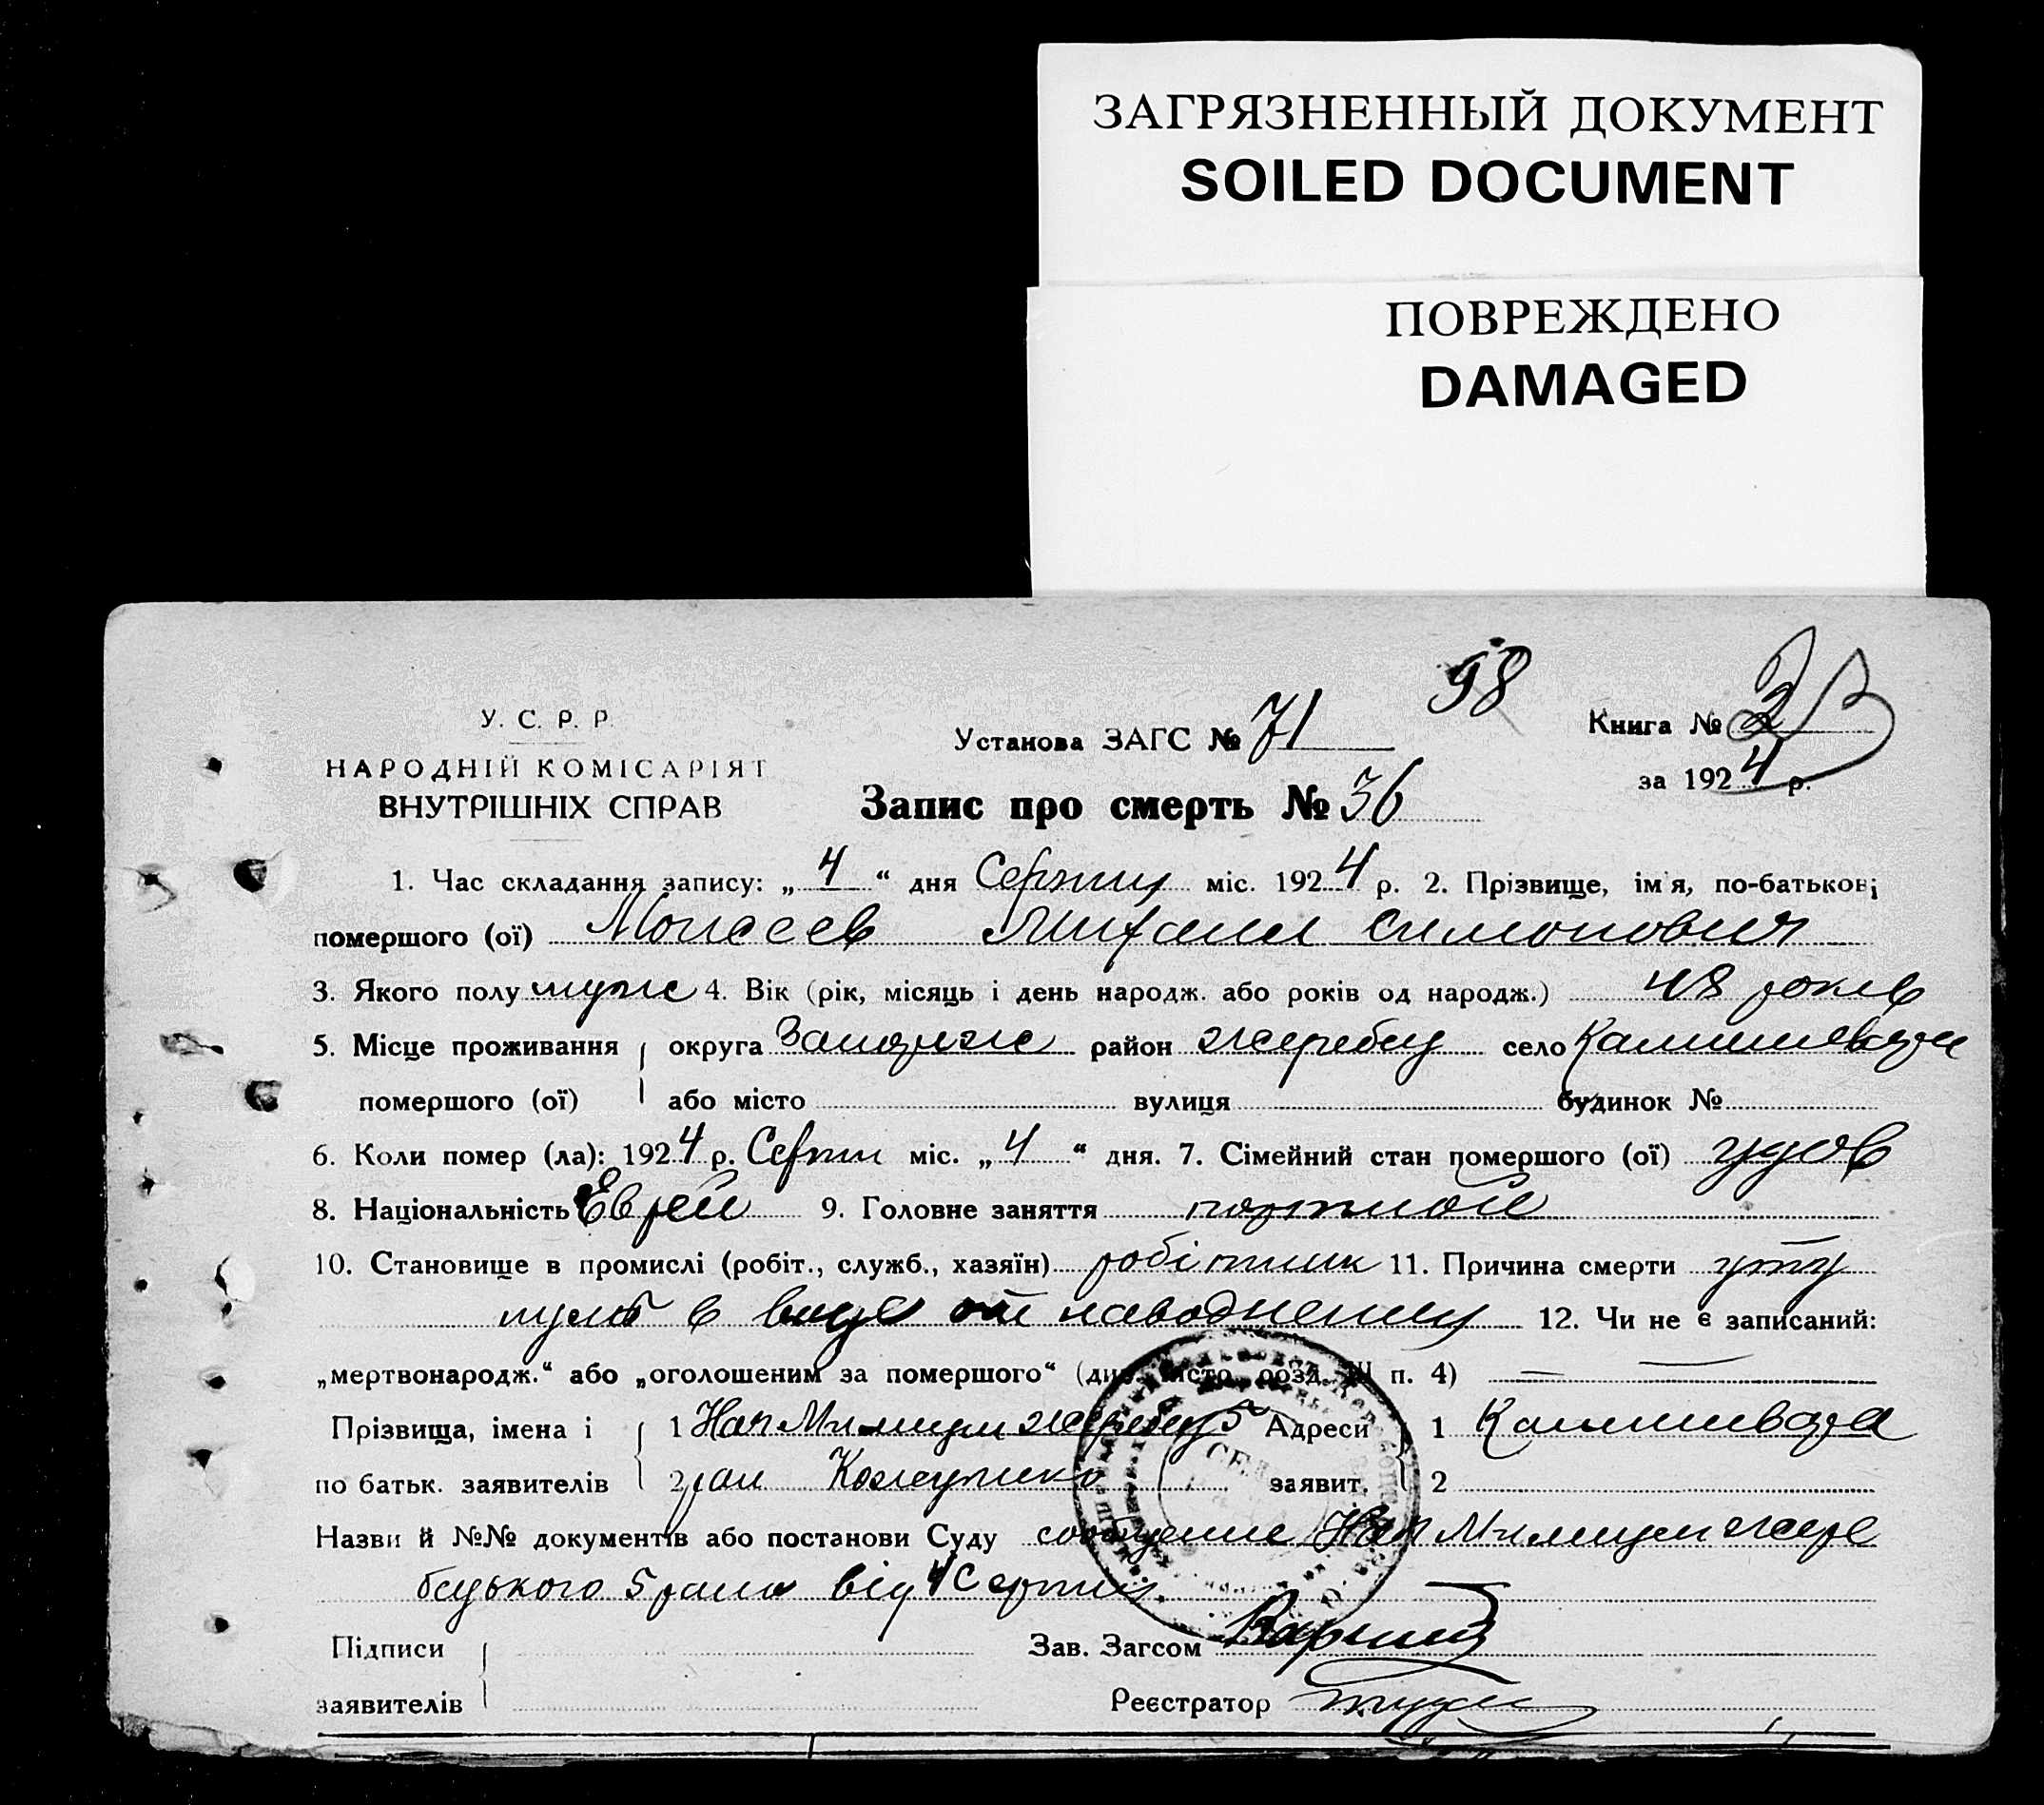 ЗАГРЯЗНЕННЫЙ ДОКУМЕНТ
SOILED DOCUMENT
ПОВРЕЖДЕНО
DAMAGED
98
У. С. Р. Р.
НАРОДНІЙ КОМІСАРІЯТ
ВНУТРІШНІХ СПРАВ
Установа ЗАГС № 71
Книга № 2
за 1924 р.
Запис про смерть № 36
1. Час складання запису: „4“ дня Серпня міс. 1924 р. 2. Прізвище, ім'я, по-батькові
помершого (ої) Моисеев Михаил Симонович
3. Якого полу муж 4. Вік (рік, місяць і день народж. або років од народж.) 48 років
5. Місце проживання округа Запоріж район Жеребец село Камишеваха
помершого (ої) або місто вулиця будинок №
6. Коли помер (ла): 1924 р. Серпня міс. „4“ дня. 7. Сімейний стан помершого (ої) удов
8. Національність Еврей 9. Головне заняття портной
10. Становище в промислі (робіт., служб., хазяїн) робітник 11. Причина смерти уто
нул в воде от наводнения 12. Чи не є записаний:
„мертвонародж.“ або „оголошеним за помершого“ (див. розд. III п. 4) —
Прізвища, імена і 1 Нач Милиции Жеребец 5 Адреси 1 Камишеваха
по батьк. заявителів 2 рай заявит. 2
Назви й №№ документів або постанови Суду сообщение Нач Милиции Жере
бецького 5 рай від 4 Серпня
Підписи Зав. Загсом
заявителів Реєстратор